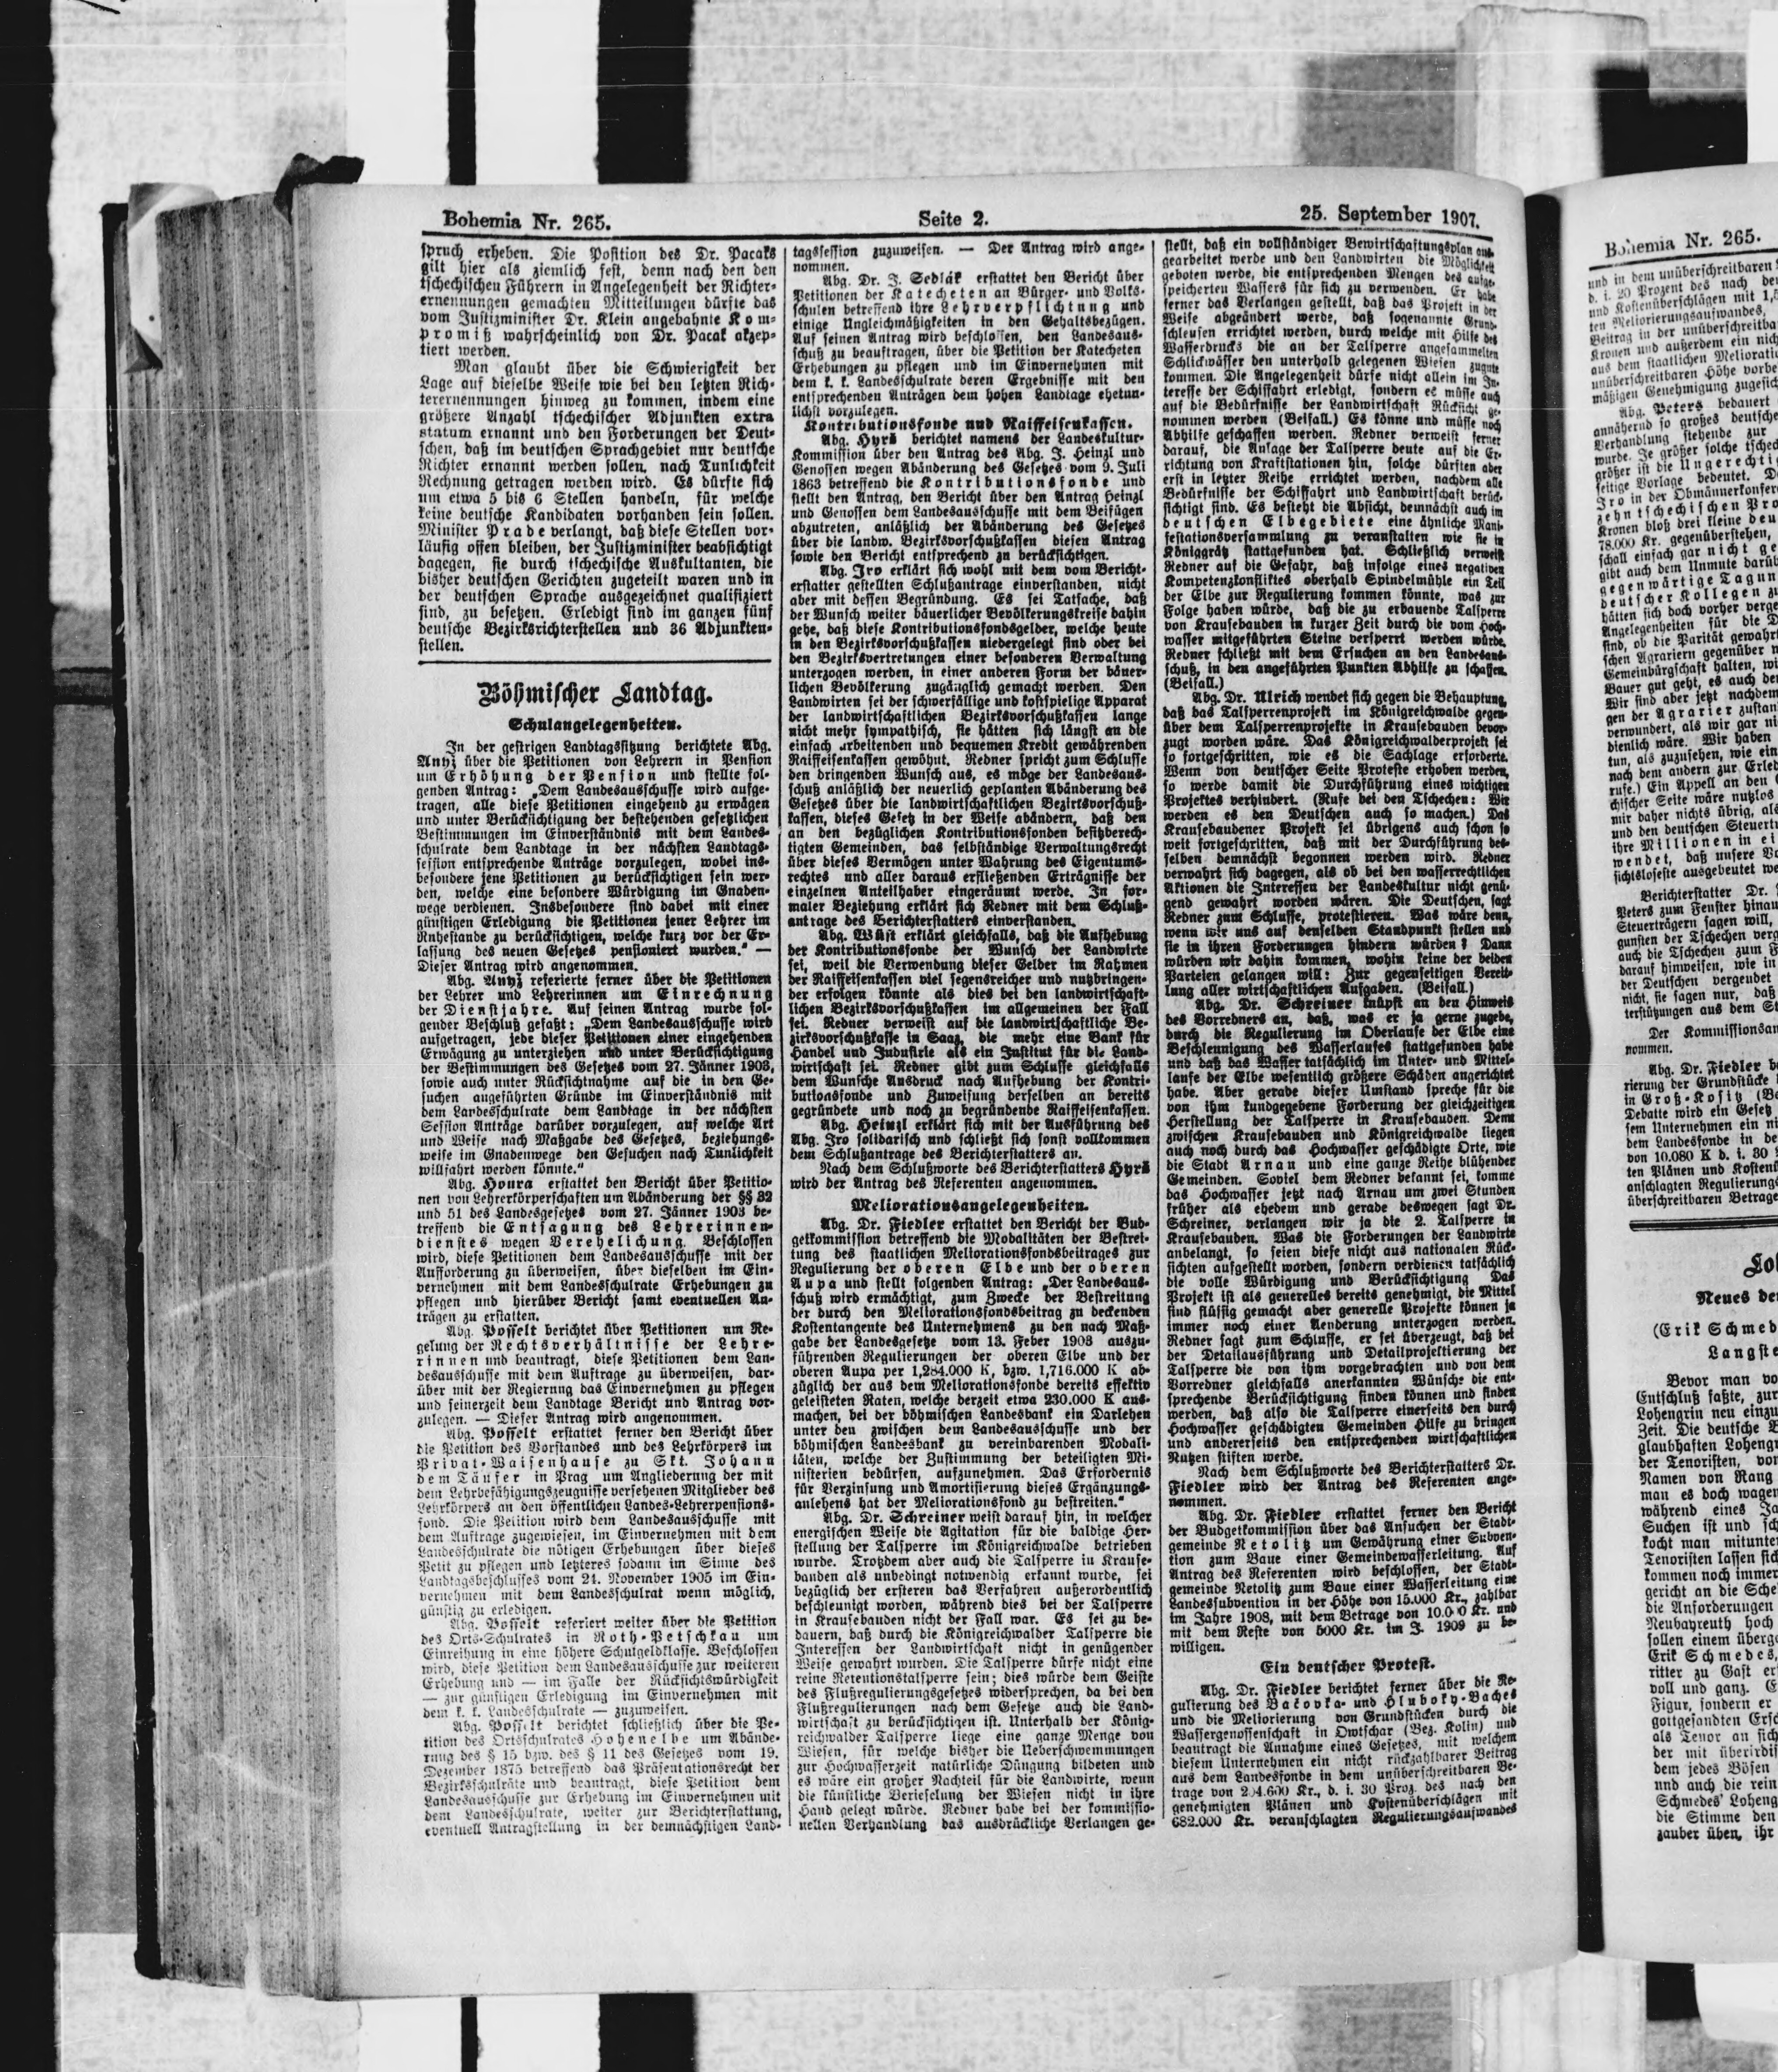 Bohemia Nr. 265.
Seite 2.
25. September 1907.
spruch erheben. Die Position des Dr. Pacaks
gilt hier als ziemlich fest, denn nach den den
tschechischen Führern in Angelegenheit der Richter-
ernennungen gemachten Mitteilungen dürfte das
vom Justizminister Dr. Klein angebahnte Kom-
promiß wahrscheinlich von Dr. Pacak akzep-
tiert werden.
Man glaubt über die Schwierigkeit der
Lage auf dieselbe Weise wie bei den letzten Rich-
terernennungen hinweg zu kommen, indem eine
größere Anzahl tschechischer Adjunkten extra
statum ernannt und den Forderungen der Deut-
schen, daß im deutschen Sprachgebiet nur deutsche
Richter ernannt werden sollen, nach Tunlichkeit
Rechnung getragen werden wird. Es dürfte sich
um etwa 5 bis 6 Stellen handeln, für welche
keine deutsche Kandidaten vorhanden sein sollen.
Minister Prade verlangt, daß diese Stellen vor-
läufig offen bleiben, der Justizminister beabsichtigt
dagegen, sie durch tschechische Auskultanten, die
bisher deutschen Gerichten zugeteilt waren und in
der deutschen Sprache ausgezeichnet qualifiziert
sind, zu besetzen. Erledigt sind im ganzen fünf
deutsche Bezirksrichterstellen und 36 Adjunkten-
stellen.
Böhmischer Landtag.
Schulangelegenheiten.
In der gestrigen Landtagssitzung berichtete Abg.
Anyz über die Petitionen von Lehrern in Pension
um Erhöhung der Pension und stellte fol-
genden Antrag: „Dem Landesausschusse wird aufge-
tragen, alle diese Petitionen eingehend zu erwägen
und unter Berücksichtigung der bestehenden gesetzlichen
Bestimmungen im Einverständnis mit dem Landes-
schulrate dem Landtage in der nächsten Landtags-
session entsprechende Anträge vorzulegen, wobei ins-
besondere jene Petitionen zu berücksichtigen sein wer-
den, welche eine besondere Würdigung im Gnaden-
wege verdienen. Insbesondere sind dabei mit einer
günstigen Erledigung die Petitionen jener Lehrer im
Ruhestande zu berücksichtigen, welche kurz vor der Er-
lassung des neuen Gesetzes pensioniert wurden.“ —
Dieser Antrag wird angenommen.
Abg. Anyz referierte ferner über die Petitionen
der Lehrer und Lehrerinnen um Einrechnung
der Dienstjahre. Auf seinen Antrag wurde fol-
gender Beschluß gefaßt: „Dem Landesausschusse wird
aufgetragen, jede dieser Petitionen einer eingehenden
Erwägung zu unterziehen und unter Berücksichtigung
der Bestimmungen des Gesetzes vom 27. Jänner 1903,
sowie auch unter Rücksichtnahme auf die in den Ge-
suchen angeführten Gründe im Einverständnis mit
dem Landesschulrate dem Landtage in der nächsten
Session Anträge darüber vorzulegen, auf welche Art
und Weise nach Maßgabe des Gesetzes, beziehungs-
weise im Gnadenwege den Gesuchen nach Tunlichkeit
willfahrt werden könnte.“
Abg. Houra erstattet den Bericht über Petitio-
nen von Lehrerkörperschaften um Abänderung der §§ 32
und 51 des Landesgesetzes vom 27. Jänner 1903 be-
treffend die Entsagung des Lehrerinnen-
dienstes wegen Verehelichung. Beschlossen
wird, diese Petitionen dem Landesausschusse mit der
Aufforderung zu überweisen, über dieselben im Ein-
vernehmen mit dem Landesschulrate Erhebungen zu
pflegen und hierüber Bericht samt eventuellen An-
trägen zu erstatten.
Abg. Posselt berichtet über Petitionen um Re-
gelung der Rechtsverhältnisse der Lehre-
rinnen und beantragt, diese Petitionen dem Lan-
desausschusse mit dem Auftrage zu überweisen, dar-
über mit der Regierung das Einvernehmen zu pflegen
und seinerzeit dem Landtage Bericht und Antrag vor-
zulegen. — Dieser Antrag wird angenommen.
Abg. Posselt erstattet ferner den Bericht über
die Petition des Vorstandes und des Lehrkörpers im
Privat-Waisenhause zu Skt. Johann
dem Täufer in Prag um Angliederung der mit
dem Lehrbefähigungszeugnisse versehenen Mitglieder des
Lehrkörpers an den öffentlichen Landes-Lehrerpensions-
fond. Die Petition wird dem Landesausschusse mit
dem Auftrage zugewiesen, im Einvernehmen mit dem
Landesschulrate die nötigen Erhebungen über dieses
Petit zu pflegen und letzteres sodann im Sinne des
Landtagsbeschlusses vom 21. November 1905 im Ein-
vernehmen mit dem Landesschulrat wenn möglich,
günstig zu erledigen.
Abg. Posselt referiert weiter über die Petition
des Orts-Schulrates in Roth-Petschkau um
Einreihung in eine höhere Schulgeldklasse. Beschlossen
wird, diese Petition dem Landesausschusse zur weiteren
Erhebung und — im Falle der Rücksichtswürdigkeit
— zur günstigen Erledigung im Einvernehmen mit
dem k. k. Landesschulrate — zuzuweisen.
Abg. Posselt berichtet schließlich über die Pe-
tition des Ortsschulrates Hohenelbe um Abände-
rung des § 15 bzw. des § 11 des Gesetzes vom 19.
Dezember 1875 betreffend das Präsentationsrecht der
Bezirksschulräte und beantragt, diese Petition dem
Landesausschusse zur Erhebung im Einvernehmen mit
dem Landesschulrate, weiter zur Berichterstattung,
eventuell Antragstellung in der demnächstigen Land-
tagssession zuzuweisen. — Der Antrag wird ange-
nommen.
Abg. Dr. J. Sedlák erstattet den Bericht über
Petitionen der Katecheten an Bürger- und Volks-
schulen betreffend ihre Lehrverpflichtung und
einige Ungleichmäßigkeiten in den Gehaltsbezügen.
Auf seinen Antrag wird beschlossen, den Landesaus-
schuß zu beauftragen, über die Petition der Katecheten
Erhebungen zu pflegen und im Einvernehmen mit
dem k. k. Landesschulrate deren Ergebnisse mit den
entsprechenden Anträgen dem hohen Landtage ehetun-
lichst vorzulegen.
Kontributionsfonde und Raiffeisenkassen.
Abg. Hyrš berichtet namens der Landeskultur-
Kommission über den Antrag des Abg. J. Heinzl und
Genossen wegen Abänderung des Gesetzes vom 9. Juli
1863 betreffend die Kontributionsfonde und
stellt den Antrag, den Bericht über den Antrag Heinzl
und Genossen dem Landesausschusse mit dem Beifügen
abzutreten, anläßlich der Abänderung des Gesetzes
über die landw. Bezirksvorschußkassen diesen Antrag
sowie den Bericht entsprechend zu berücksichtigen.
Abg. Iro erklärt sich wohl mit dem vom Bericht-
erstatter gestellten Schlußantrage einverstanden, nicht
aber mit dessen Begründung. Es sei Tatsache, daß
der Wunsch weiter bäuerlicher Bevölkerungskreise dahin
gehe, daß diese Kontributionsfondsgelder, welche heute
in den Bezirksvorschußkassen niedergelegt sind oder bei
den Bezirksvertretungen einer besonderen Verwaltung
unterzogen werden, in einer anderen Form der bäuer-
lichen Bevölkerung zugänglich gemacht werden. Den
Landwirten sei der schwerfällige und kostspielige Apparat
der landwirtschaftlichen Bezirksvorschußkassen lange
nicht mehr sympathisch, sie hätten sich längst an die
einfach arbeitenden und bequemen Kredit gewährenden
Raiffeisenkassen gewöhnt. Redner spricht zum Schlusse
den dringenden Wunsch aus, es möge der Landesaus-
schuß anläßlich der neuerlich geplanten Abänderung des
Gesetzes über die landwirtschaftlichen Bezirksvorschuß-
kassen, dieses Gesetz in der Weise abändern, daß den
an den bezüglichen Kontributionsfonden besitzberech-
tigten Gemeinden, das selbständige Verwaltungsrecht
über dieses Vermögen unter Wahrung des Eigentums-
rechtes und aller daraus erfließenden Erträgnisse der
einzelnen Anteilhaber eingeräumt werde. In for-
maler Beziehung erklärt sich Redner mit dem Schluß-
antrage des Berichterstatters einverstanden.
Abg. Wüst erklärt gleichfalls, daß die Aufhebung
der Kontributionsfonde der Wunsch der Landwirte
sei, weil die Verwendung dieser Gelder im Rahmen
der Raiffeisenkassen viel segensreicher und nutzbringen-
der erfolgen könnte als dies bei den landwirtschaft-
lichen Bezirksvorschußkassen im allgemeinen der Fall
sei. Redner verweist auf die landwirtschaftliche Be-
zirksvorschußkasse in Saaz, die mehr eine Bank für
Handel und Industrie als ein Institut für die Land-
wirtschaft sei. Redner gibt zum Schlusse gleichfalls
dem Wunsche Ausdruck nach Aufhebung der Kontri-
butionsfonde und Zuweisung derselben an bereits
gegründete und noch zu begründende Raiffeisenkassen.
Abg. Heinzl erklärt sich mit der Ausführung des
Abg. Iro solidarisch und schließt sich sonst vollkommen
dem Schlußantrage des Berichterstatters an.
Nach dem Schlußworte des Berichterstatters Hyrš
wird der Antrag des Referenten angenommen.
Meliorationsangelegenheiten.
Abg. Dr. Fiedler erstattet den Bericht der Bud-
getkommission betreffend die Modalitäten der Bestrei-
tung des staatlichen Meliorationsfondsbeitrages zur
Regulierung der oberen Elbe und der oberen
Aupa und stellt folgenden Antrag: „Der Landesaus-
schuß wird ermächtigt, zum Zwecke der Bestreitung
der durch den Meliorationsfondsbeitrag zu deckenden
Kostentangente des Unternehmens zu den nach Maß-
gabe der Landesgesetze vom 13. Feber 1903 auszu-
führenden Regulierungen der oberen Elbe und der
oberen Aupa per 1,284.000 K, bzw. 1,716.000 K ab-
züglich der aus dem Meliorationsfonde bereits effektiv
geleisteten Raten, welche derzeit etwa 230.000 K aus-
machen, bei der böhmischen Landesbank ein Darlehen
unter den zwischen dem Landesausschusse und der
böhmischen Landesbank zu vereinbarenden Modali-
täten, welche der Zustimmung der beteiligten Mi-
nisterien bedürfen, aufzunehmen. Das Erfordernis
für Verzinsung und Amortisierung dieses Ergänzungs-
anlehens hat der Meliorationsfond zu bestreiten.“
Abg. Dr. Schreiner weist darauf hin, in welcher
energischen Weise die Agitation für die baldige Her-
stellung der Talsperre im Königreichwalde betrieben
wurde. Trotzdem aber auch die Talsperre in Krause-
bauden als unbedingt notwendig erkannt wurde, sei
bezüglich der ersteren das Verfahren außerordentlich
beschleunigt worden, während dies bei der Talsperre
in Krausebauden nicht der Fall war. Es sei zu be-
dauern, daß durch die Königreichwalder Talsperre die
Interessen der Landwirtschaft nicht in genügender
Weise gewahrt wurden. Die Talsperre dürfe nicht eine
reine Retentionstalsperre sein; dies würde dem Geiste
des Flußregulierungsgesetzes widersprechen, da bei den
Flußregulierungen nach dem Gesetze auch die Land-
wirtschaft zu berücksichtigen ist. Unterhalb der König-
reichwalder Talsperre liege eine ganze Menge von
Wiesen, für welche bisher die Ueberschwemmungen
zur Hochwasserzeit natürliche Düngung bildeten und
es wäre ein großer Nachteil für die Landwirte, wenn
die künstliche Berieselung der Wiesen nicht in ihre
Hand gelegt würde. Redner habe bei der kommissio-
nellen Verhandlung das ausdrückliche Verlangen ge-
stellt, daß ein vollständiger Bewirtschaftungsplan aus-
gearbeitet werde und den Landwirten die Möglichkeit
geboten werde, die entsprechenden Mengen des aufge-
speicherten Wassers für sich zu verwenden. Er habe
ferner das Verlangen gestellt, daß das Projekt in der
Weise abgeändert werde, daß sogenannte Grund-
schleusen errichtet werden, durch welche mit Hilfe des
Wasserdrucks die an der Talsperre angesammelten
Schlickwässer den unterhalb gelegenen Wiesen zugute
kommen. Die Angelegenheit dürfe nicht allein im In-
teresse der Schiffahrt erledigt, sondern es müsse auch
auf die Bedürfnisse der Landwirtschaft Rücksicht ge-
nommen werden (Beifall.) Es könne und müsse noch
Abhilfe geschaffen werden. Redner verweist ferner
darauf, die Anlage der Talsperre deute auf die Er-
richtung von Kraftstationen hin, solche dürften aber
erst in letzter Reihe errichtet werden, nachdem alle
Bedürfnisse der Schiffahrt und Landwirtschaft berück-
sichtigt sind. Es besteht die Absicht, demnächst auch im
deutschen Elbegebiete eine ähnliche Mani-
festationsversammlung zu veranstalten wie sie in
Königgrätz stattgefunden hat. Schließlich verweist
Redner auf die Gefahr, daß infolge eines negativen
Kompetenzkonfliktes oberhalb Spindelmühle ein Teil
der Elbe zur Regulierung kommen könnte, was zur
Folge haben würde, daß die zu erbauende Talsperre
von Krausebauden in kurzer Zeit durch die vom Hoch-
wasser mitgeführten Steine versperrt werden würde.
Redner schließt mit dem Ersuchen an den Landesaus-
schuß, in den angeführten Punkten Abhilfe zu schaffen.
(Beifall.)
Abg. Dr. Ulrich wendet sich gegen die Behauptung,
daß das Talsperrenprojekt im Königreichwalde gegen-
über dem Talsperrenprojekte in Krausebauden bevor-
zugt worden wäre. Das Königreichwalderprojekt sei
so fortgeschritten, wie es die Sachlage erforderte.
Wenn von deutscher Seite Proteste erhoben werden,
so werde damit die Durchführung eines wichtigen
Projektes verhindert. (Rufe bei den Tschechen: Wir
werden es den Deutschen auch so machen.) Das
Krausebaudener Projekt sei übrigens auch schon so
weit fortgeschritten, daß mit der Durchführung des-
selben demnächst begonnen werden wird. Redner
verwahrt sich dagegen, als ob bei den wasserrechtlichen
Aktionen die Interessen der Landeskultur nicht genü-
gend gewahrt worden wären. Die Deutschen, sagt
Redner zum Schlusse, protestieren. Was wäre denn,
wenn wir uns auf denselben Standpunkt stellen und
sie in ihren Forderungen hindern würden? Dann
würden wir dahin kommen, wohin keine der beiden
Parteien gelangen will: Zur gegenseitigen Vereit-
lung aller wirtschaftlichen Aufgaben. (Beifall.)
Abg. Dr. Schreiner knüpft an den Hinweis
des Vorredners an, daß, was er ja gerne zugebe,
durch die Regulierung im Oberlaufe der Elbe eine
Beschleunigung des Wasserlaufes stattgefunden habe
und daß das Wasser tatsächlich im Unter- und Mittel-
laufe der Elbe wesentlich größere Schäden angerichtet
habe. Aber gerade dieser Umstand spreche für die
von ihm kundgegebene Forderung der gleichzeitigen
Herstellung der Talsperre in Krausebauden. Denn
zwischen Krausebauden und Königreichwalde liegen
auch noch durch das Hochwasser geschädigte Orte, wie
die Stadt Arnau und eine ganze Reihe blühender
Gemeinden. Soviel dem Redner bekannt sei, komme
das Hochwasser jetzt nach Arnau um zwei Stunden
früher als ehedem und gerade deswegen sagt Dr.
Schreiner, verlangen wir ja die 2. Talsperre in
Krausebauden. Was die Forderungen der Landwirte
anbelangt, so seien diese nicht aus nationalen Rück-
sichten aufgestellt worden, sondern verdienen tatsächlich
die volle Würdigung und Berücksichtigung Das
Projekt ist als generelles bereits genehmigt, die Mittel
sind flüssig gemacht aber generelle Projekte können ja
immer noch einer Aenderung unterzogen werden.
Redner sagt zum Schlusse, er sei überzeugt, daß bei
der Detailausführung und Detailprojektierung der
Talsperre die von ihm vorgebrachten und von dem
Vorredner gleichfalls anerkannten Wünsche die ent-
sprechende Berücksichtigung finden können und finden
werden, daß also die Talsperre einerseits den durch
Hochwasser geschädigten Gemeinden Hilfe zu bringen
und andererseits den entsprechenden wirtschaftlichen
Nutzen stiften werde.
Nach dem Schlußworte des Berichterstatters Dr.
Fiedler wird der Antrag des Referenten ange-
nommen.
Abg. Dr. Fiedler erstattet ferner den Bericht
der Budgetkommission über das Ansuchen der Stadt-
gemeinde Netolitz um Gewährung einer Subven-
tion zum Baue einer Gemeindewasserleitung. Auf
Antrag des Referenten wird beschlossen, der Stadt-
gemeinde Netolitz zum Baue einer Wasserleitung eine
Landessubvention in der Höhe von 15.000 Kr., zahlbar
im Jahre 1908, mit dem Betrage von 10.000 Kr. und
mit dem Reste von 5000 Kr. im J. 1909 zu be-
willigen.
Ein deutscher Protest.
Abg. Dr. Fiedler berichtet ferner über die Re-
gulierung des Bačovka- und Hluboky-Baches
und die Meliorierung von Grundstücken durch die
Wassergenossenschaft in Owtschar (Bez. Kolin) und
beantragt die Annahme eines Gesetzes, mit welchem
diesem Unternehmen ein nicht rückzahlbarer Beitrag
aus dem Landesfonde in dem unüberschreitbaren Be-
trage von 204.600 Kr., d. i. 30 Proz. des nach den
genehmigten Plänen und Kostenüberschlägen mit
682.000 Kr. veranschlagten Regulierungsaufwandes
Bohemia Nr. 265.
und in dem unüberschreitbaren
d. i. 20 Prozent des nach
und Kostenüberschlägen mit
ten Meliorierungsaufwandes,
Beitrag in der unüberschreitba
Kronen und außerdem ein
aus dem staatlichen Meliorati
unüberschreitbaren Höhe vorbe
mäßigen Genehmigung
Abg. Peters bedauert
annähernd so großes deutsche
Verhandlung stehende zur
wurde. Je größer solche
größer ist die Ungerechti
seitige Vorlage bedeutet.
Iro in der Obmännerkonfer
zehn tschechischen Pro
Kronen bloß drei kleine deu
78.000 Kr. gegenüberstehen,
schall einfach gar nicht ge
gibt auch dem Unmute darüb
gegenwärtige Tagun
deutscher Kollegen zu
hätten sich doch vorher verge
Angelegenheiten für die D
sind, ob die Parität gewahrt
schen Agrariern gegenüber
Gemeinbürgschaft halten, wi
Bauer gut geht, es auch de
Wir sind aber jetzt nachdem
gen der Agrarier zustan
verwundert, als wir gar ni
dienlich wäre. Wir haben
tun, als zuzusehen, wie ein
nach dem andern zur Erled
rufe.) Ein Appell an den
chischer Seite wäre nutzlos
mir daher nichts übrig, als
und den deutschen Steuertr
ihre Millionen in ei
wendet, daß unsere Vo
sichtsloseste ausgebeutet we
Berichterstatter Dr.
Peters zum Fenster hinau
Steuerträgern sagen will,
gunsten der Tschechen verg
auch die Tschechen zum F
darauf hinweisen, wie in
der Deutschen vergeudet
nicht, sie sagen nur, daß
terstützungen aus dem St
Der Kommissionsan
nommen.
Abg. Dr. Fiedler be
rierung der Grundstücke
in Groß-Kositz (Be
Debatte wird ein Gesetz
sem Unternehmen ein ni
dem Landesfonde in de
von 10.080 K d. i. 30
ten Plänen und Kostenü
anschlagten Regulierungs
überschreitbaren Betrage
Neues de
(Erik Schmed
Langste
Bevor man vo
Entschluß faßte, zur
Lohengrin neu einzu
Zeit. Die deutsche B
glaubhaften Lohengr
der Tenoristen, von
Namen von Rang
man es doch wagen
während eines Ja
Suchen ist und sch
kocht man mitunte
Tenoristen lassen sich
kommen noch immer
gericht an die Sche
die Anforderungen
Neubayreuth hoch
sollen einem überge
Erik Schmedes,
ritter zu Gast er
voll und ganz. E
Figur, sondern er
gottgesandten Ersc
als Tenor an sich
der mit überirdis
dem jedes Bösen
und auch die rein
Schmedes' Loheng
die Stimme den
zauber üben, ihr